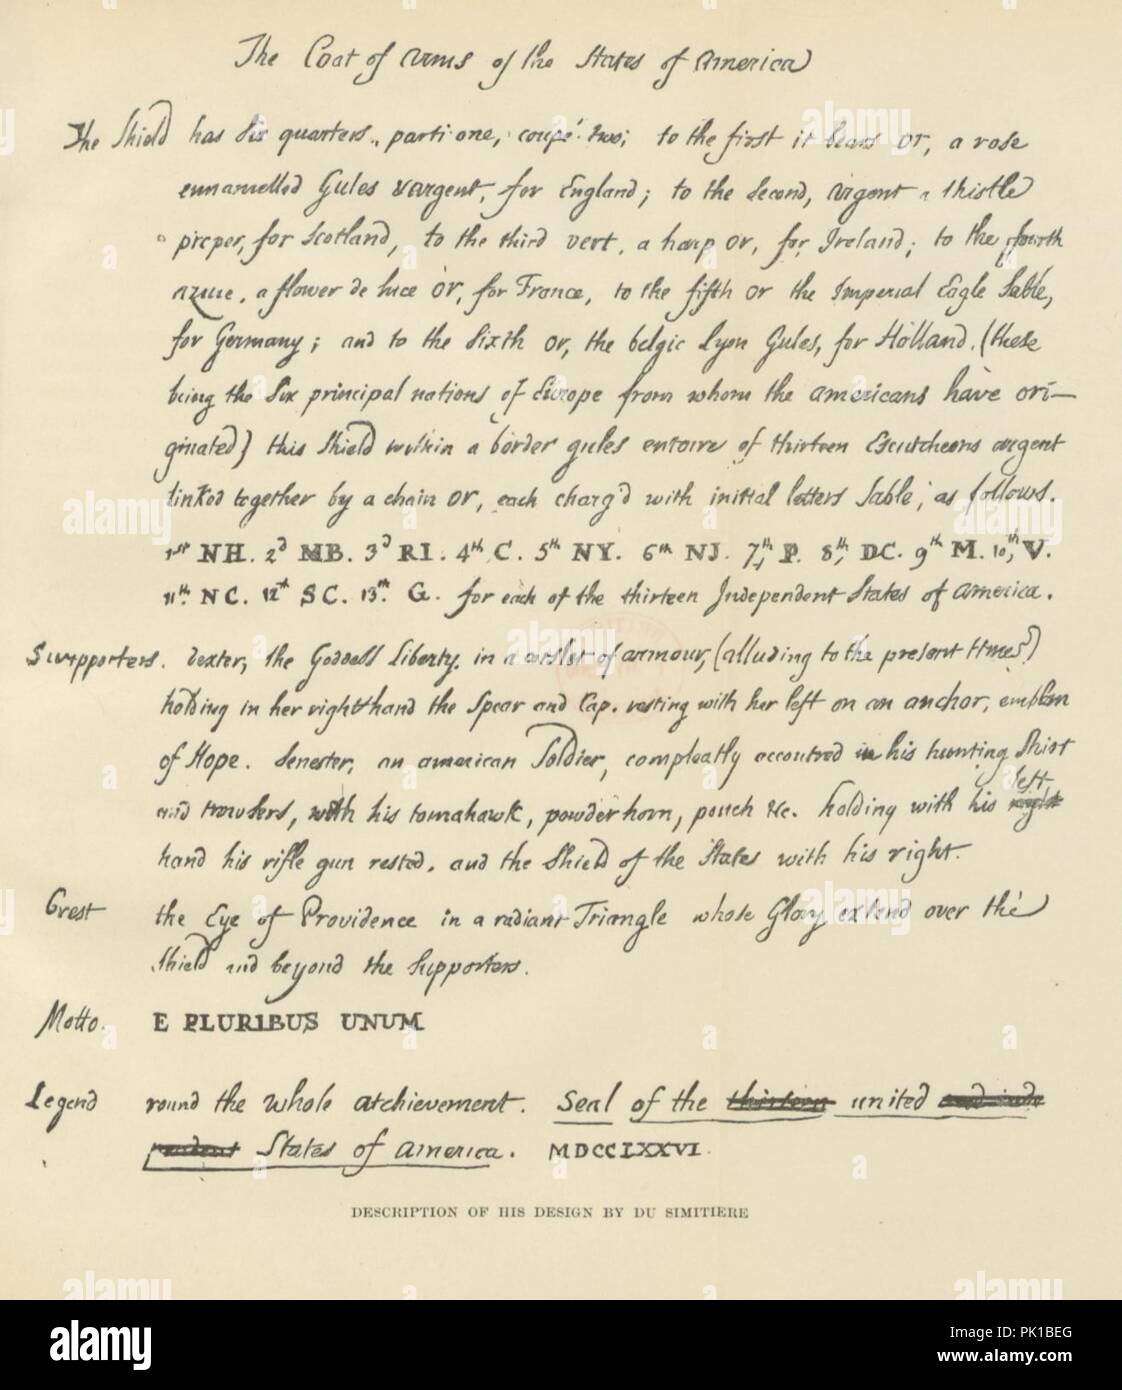 The Coat of Arms of the States of America
The Shield has Six quarters, parti one, coupé two; to the first it bears or, a rose
ennamelled Gules & argent, for England; to the Second, argent a thistle
proper, for Scotland, to the third vert, a harp or, for Ireland; to the fourth
azure, a flower de luce or, for France, to the fifth or the Imperial Eagle Sable,
for Germany; and to the Sixth or, the belgic Lyon Gules, for Holland. (these
being the Six principal nations of Europe from whom the americans have ori-
ginated) this Shield within a border gules entoire of thirteen Escutcheons argent
linked together by a chain or, each charg'd with initial letters Sable, as follows.
1st NH. 2d MB. 3d RI. 4th C. 5th NY. 6th NJ. 7th P. 8th DC. 9th M. 10th V.
11th NC. 12th SC. 13th G. for each of the thirteen Independent States of America.
Supporters. dexter, the Goddess Liberty. in a corslet of armour, (alluding to the present times)
holding in her right hand the Spear and Cap. resting with her left on an anchor, emblem
of Hope. Senester, an american Soldier, compleatly accoutred in his hunting Shirt
and trowsers, with his tomahawk, powder horn, pouch &c. holding with his right left
hand his rifle gun rested. and the Shield of the States with his right.
Crest the Eye of Providence in a radiant Triangle whose Glory extend over the
Shield and beyond the Supporters.
Motto. E PLURIBUS UNUM
Legend round the whole atchievement. Seal of the thirteen united and inde
pendent States of America. MDCCLXXVI.
DESCRIPTION OF HIS DESIGN BY DU SIMITIERE
alamy
PK1BEG
www.alamy.com